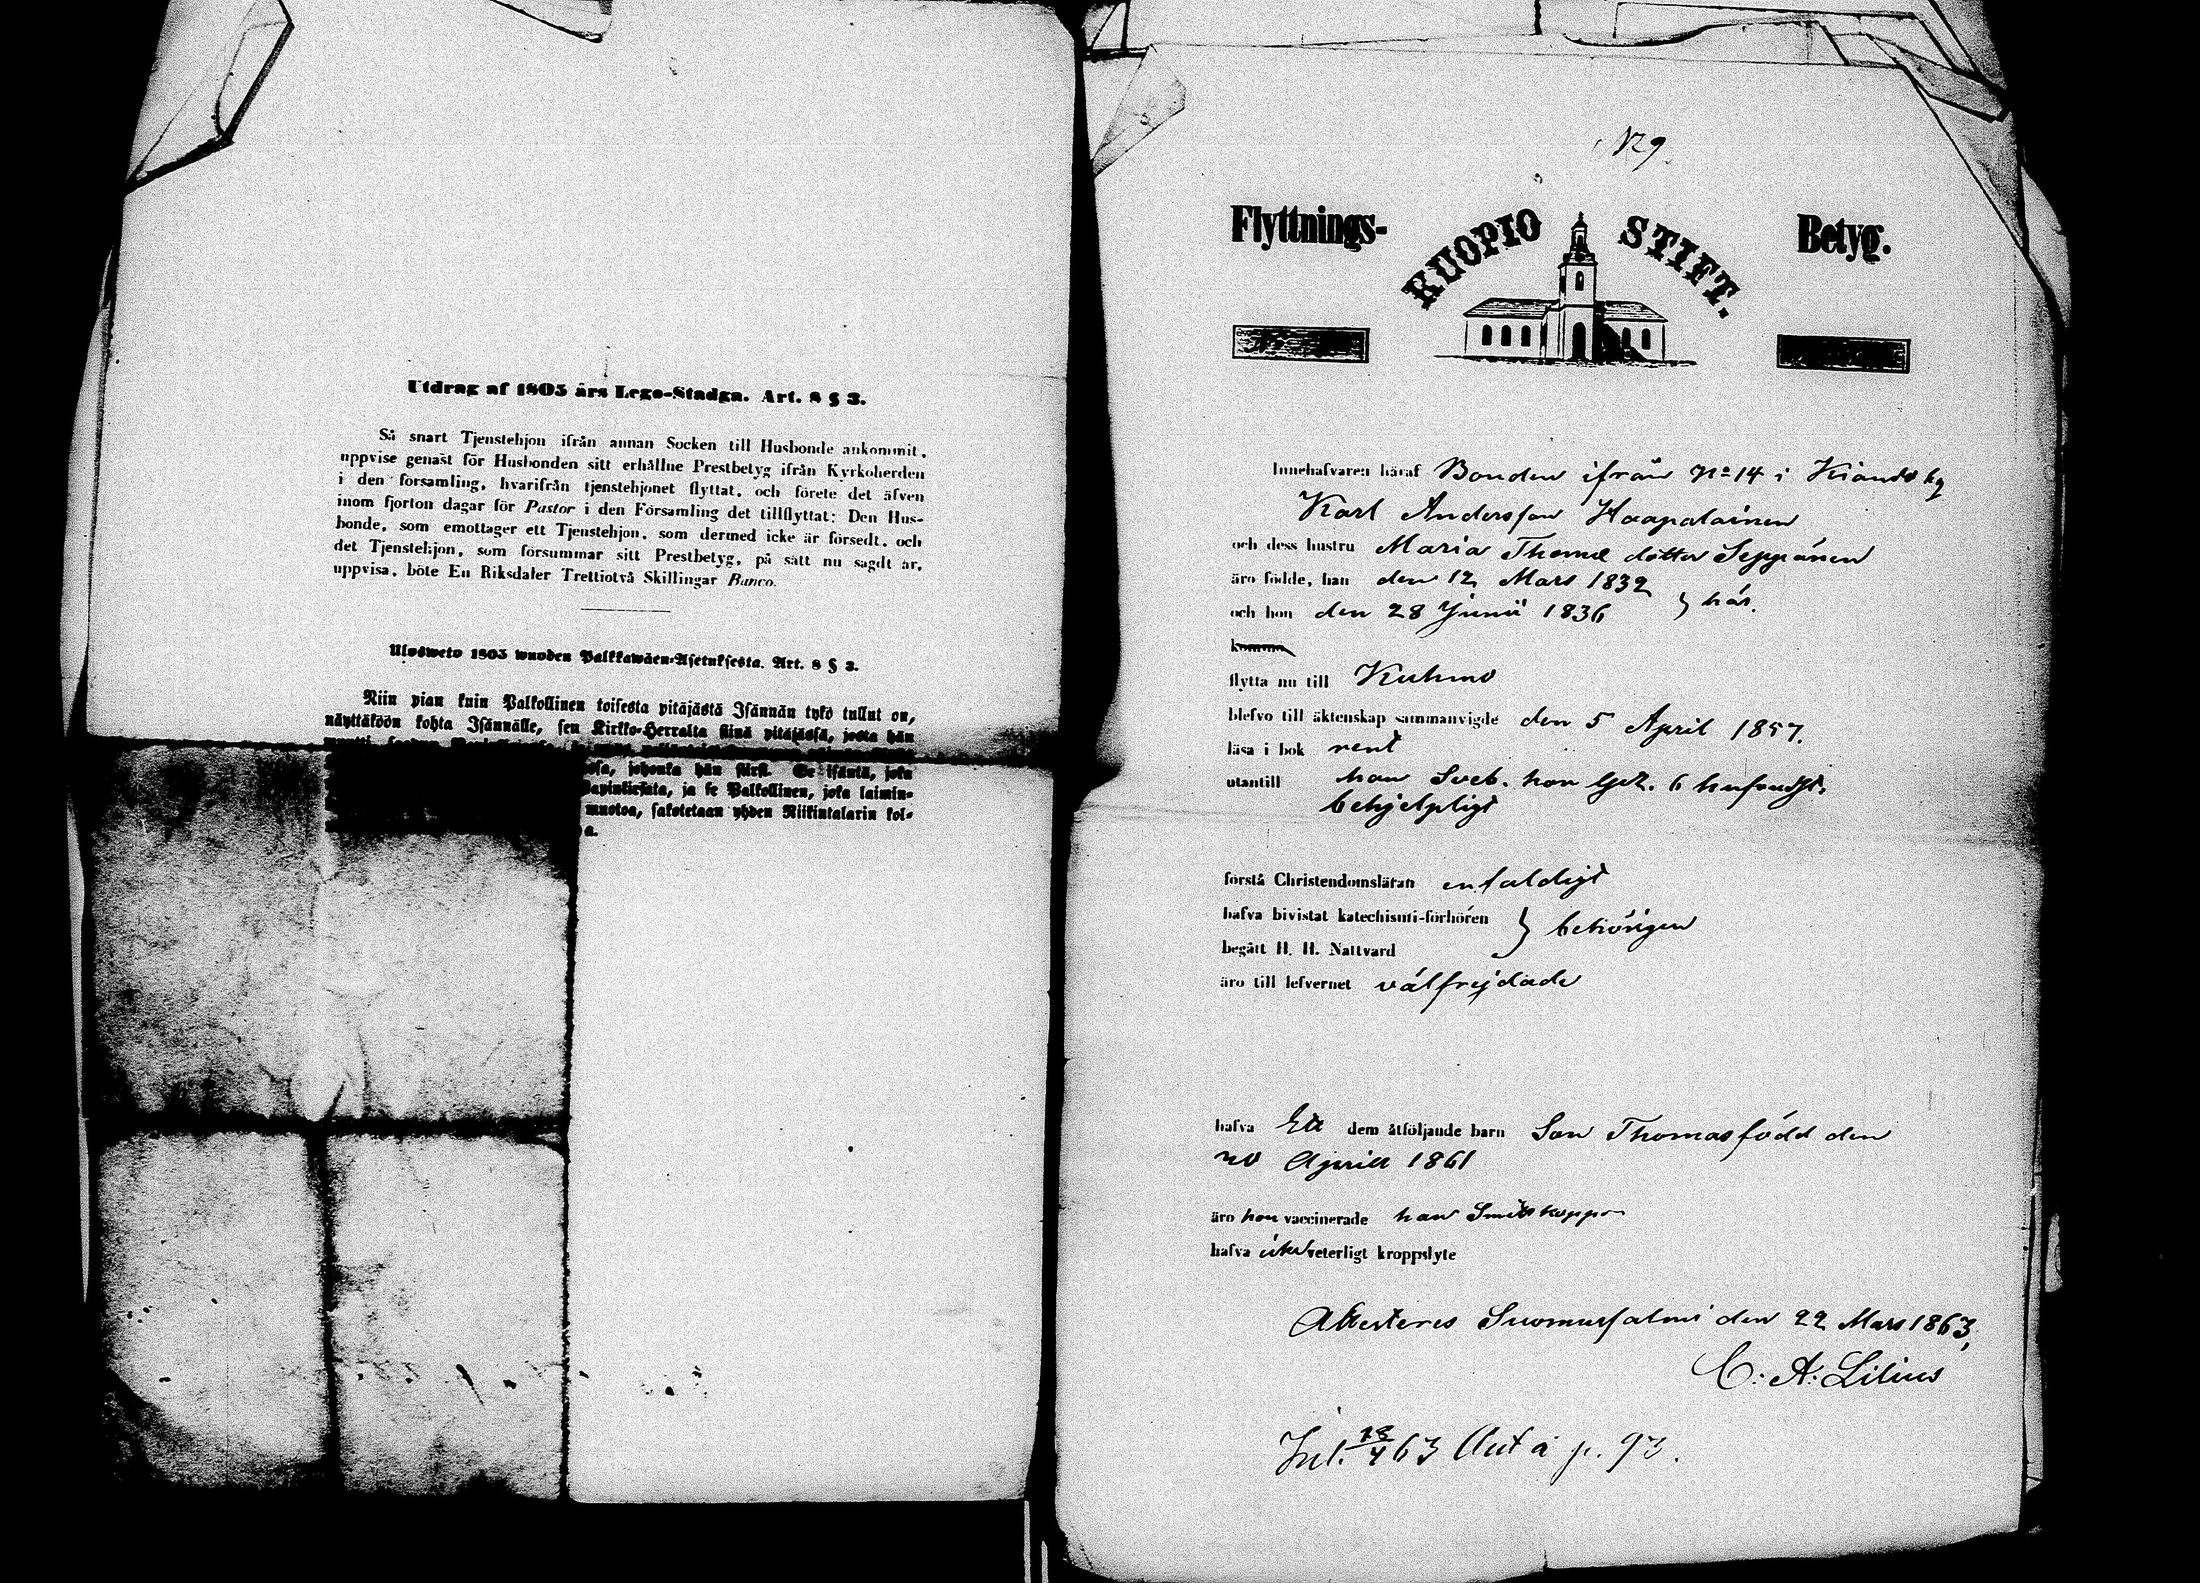 Utdrag af 1805 års Lego-Stadga. Art. 8 § 3.
Så snart Tjenstehjon ifrån annan Socken till Husbonde ankommit,
uppvise genast för Husbonden sitt erhållne Prestbetyg ifrån Kyrkoherden
i den församling, hvarifrån tjenstehjonet flyttat, och förete det äfven
inom fjorton dagar för Pastor i den Församling det tillflyttat: Den Hus-
bonde, som emottager ett Tjenstehjon, som dermed icke är försedt, och
det Tjenstehjon, som försummar sitt Prestbetyg, på sätt nu sagdt är,
uppvisa, böte En Riksdaler Trettiotvå Skillingar Banco.
Ulosweto 1805 wuoden Palkkawäen-Asetuksesta. Art. 8 § 3.
Niin pian kuin Palkollinen toisesta pitäjästä Isännän tykö tullut on,
näyttäköön kohta Isännälle, sen Kirkko-Herralta siinä pitäjässä, josta hän
johonka hän siirsi. Se isäntä, joka
Papinkirjata, ja se Palkollinen, joka laimin-
muotoa, sakotetaan yhden Riikintalarin kol-
a.
N 9
Flyttnings-
KUOPIO STIFT.
Betyg.
Innehafvaren häraf Bonden ifrån No 14 i Kiando by
Karl Andersson Haapalainen
och dess hustru Maria Thomæ dotter Seppänen
äro födde, han den 12 Mars 1832
och hon den 28 Junii 1836 } här.
komma
flytta nu till Kuhmo
blefvo till äktenskap sammanvigde den 5 April 1857.
läsa i bok rent
utantill han Sveb. hon Gez. 6 hufvudst.
behjelpligt
förstå Christendomsläran enfaldigt
hafva bivistat katechismi-förhören } behörigen
begått H. H. Nattvard
äro till lefvernet välfrejdade
hafva Ett dem åtföljande barn Son Thomas född den
20 Aprill 1861
äro hon vaccinerade han Smittkoppor
hafva icke veterligt kroppslyte
Attesteres Suomussalmi den 22 Mars 1863,
C. A. Lilius
Inl. 18/4 63 Ant å p. 93.